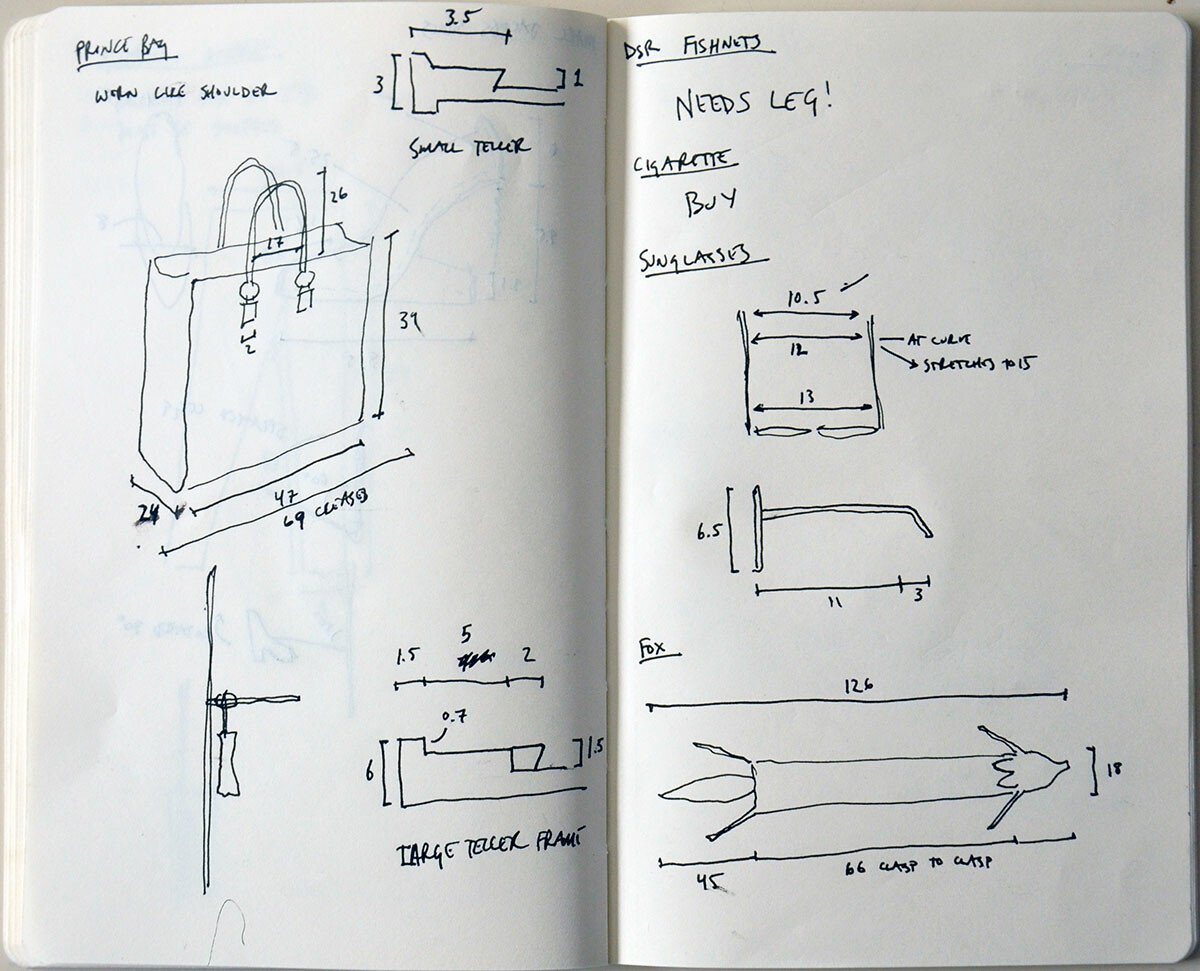 PRINCE BAG
WORN LIKE SHOULDER
3.5
3
1
SMALL TELLER
26
17
2
39
24
47
69 CREASED
1.5
5
2
0.7
6
1.5
LARGE TELLER FRAME
DSR FISHNETS
NEEDS LEG!
CIGARETTE
BUY
SUNGLASSES
10.5
12
AT CURVE
STRETCHES TO 15
13
6.5
11
3
FOX
126
18
45
66 CLASP TO CLASP